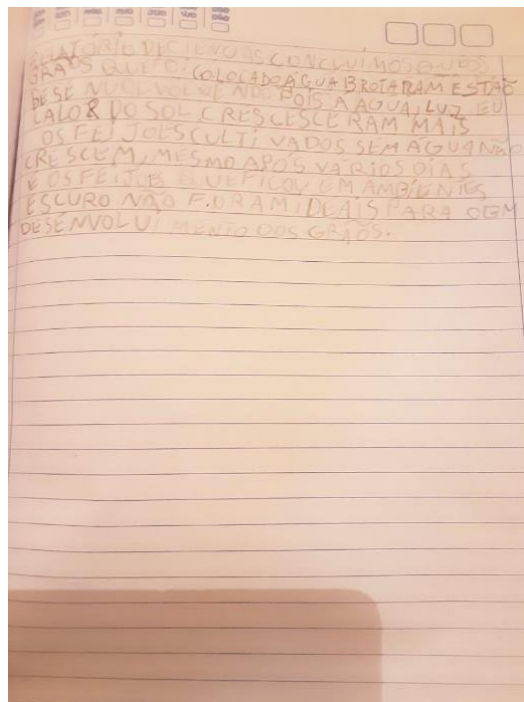 RELATÓRIO DE CIENCIAS CONCLUIMOS QUE OS
GRÃOS QUE FOI COLOCADO ÁGUA BROTARAM ESTÃO
DESENVOLVENDO POIS A AGUA, LUZ EU
CALOR DO SOL CRESCESCERAM MAIS
OS FEIJOES CULTIVADOS SEM AGUA NÃO
CRESCEM, MESMO APÓS VARIOS DIAS
E OS FEIJOE QUE FICOU EM AMBIENTES
ESCURO NÃO FORAM IDEAIS PARA O BM
DESENVOLVIMENTO DOS GRÃOS.